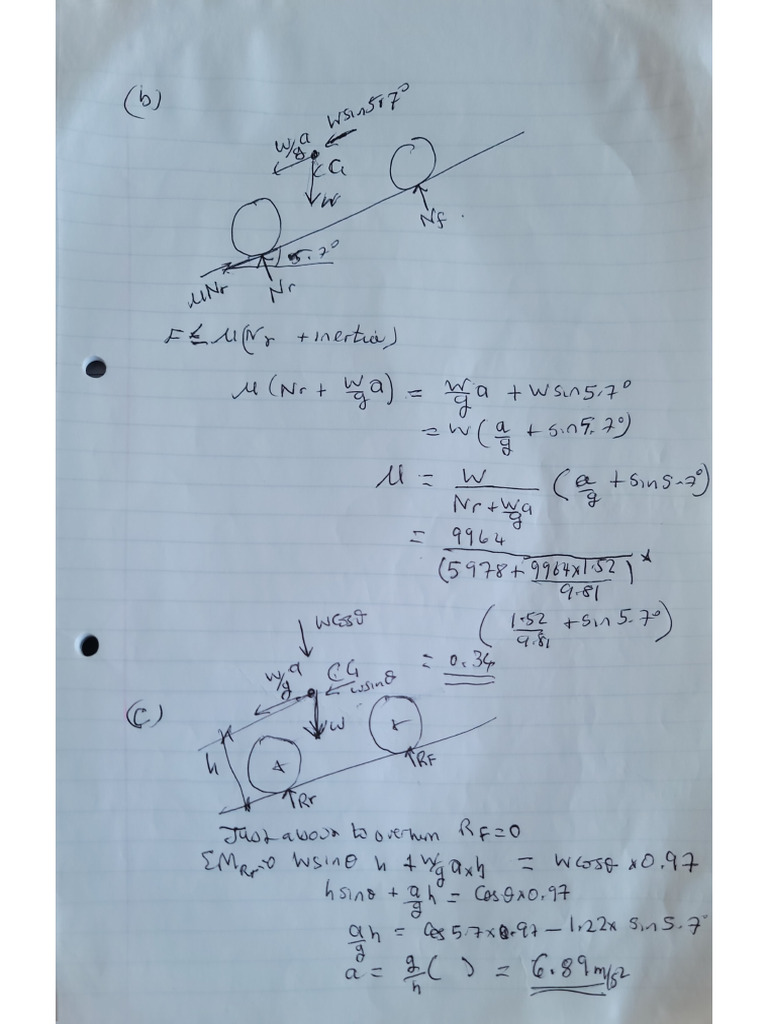 (b)
Wsin5.7°
W/g a
CG
W
Nf
5.7°
μNr
Nr
F ≤ μ(Nr + inertia)
μ(Nr + W/g a) = W/g a + Wsin5.7°
= W(a/g + sin5.7°)
μ = W/(Nr + W/g a) (a/g + sin5.7°)
= 9964/(5978 + 9964×1.52/9.81) *
(1.52/9.81 + sin5.7°)
= 0.34
Wcosθ
W/g a
CG
wsinθ
(c)
W
h
RF
Rr
Just about to overturn RF=0
ΣMRr=0 Wsinθ h + W/g a×h = Wcosθ×0.97
hsinθ + a/g h = Cosθ×0.97
a/g h = Cos5.7×0.97 – 1.22× sin5.7°
a = g/h ( ) = 6.89m/s2